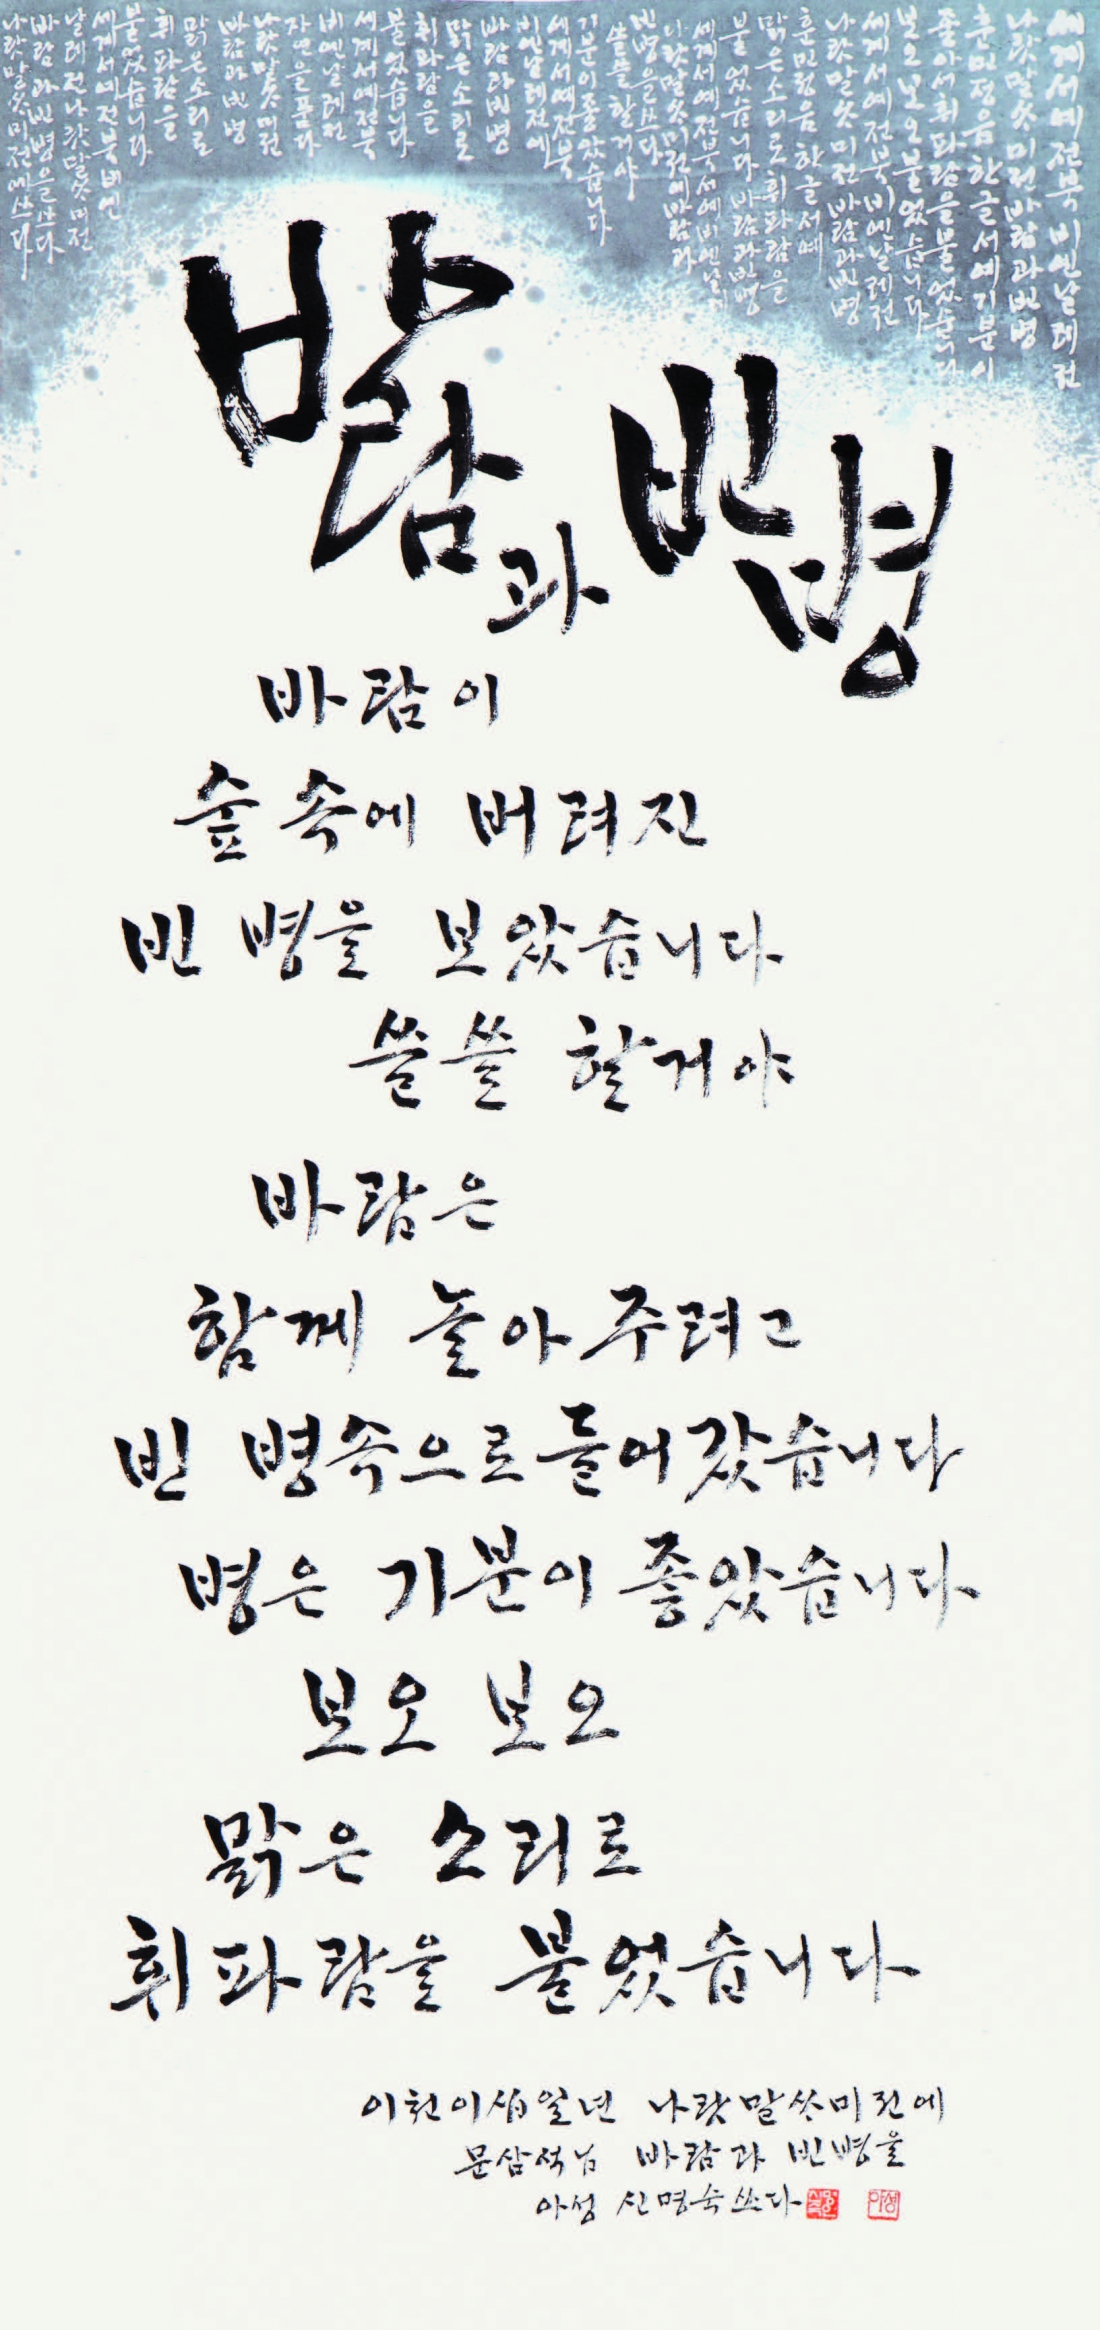 세계서예전북비엔날레전
나랏말씃미전바람과빈병
훈민정음한글서예기분이
좋아서휘파람을불었습니다
보오보오불었습니다
세계서예전북비엔날레전
나랏말씃미전바람과빈병
훈민정음한글서예
맑은소리로휘파람을
불었습니다바람과빈병
세계서예전북서예비엔날레
나랏말씃미전에바람과
빈병을쓰다
쓸쓸할거야
기분이좋았습니다
세계서예전북
비엔날레전에
바람과빈병
맑은소리로
휘파람을
불었습니다
세계서예전북
비엔날레전
자연을품다
나랏말씃미전
바람과빈병
맑은소리로
휘파람을
불었습니다
세계서예전북비엔
날레전나랏말씃미전
바람과빈병을쓰다
나랏말씃미전에쓰다
바람과 빈병
바람이
숲속에 버려진
빈 병을 보았습니다
쓸쓸 할거야
바람은
함께 놀아주려고
빈 병속으로들어갔습니다
병은 기분이 좋았습니다
보오 보오
맑은 소리로
휘파람을 불었습니다
이천이십일년 나랏말씃미전에
문삼석님 바람과 빈병을
아성 신명숙쓰다